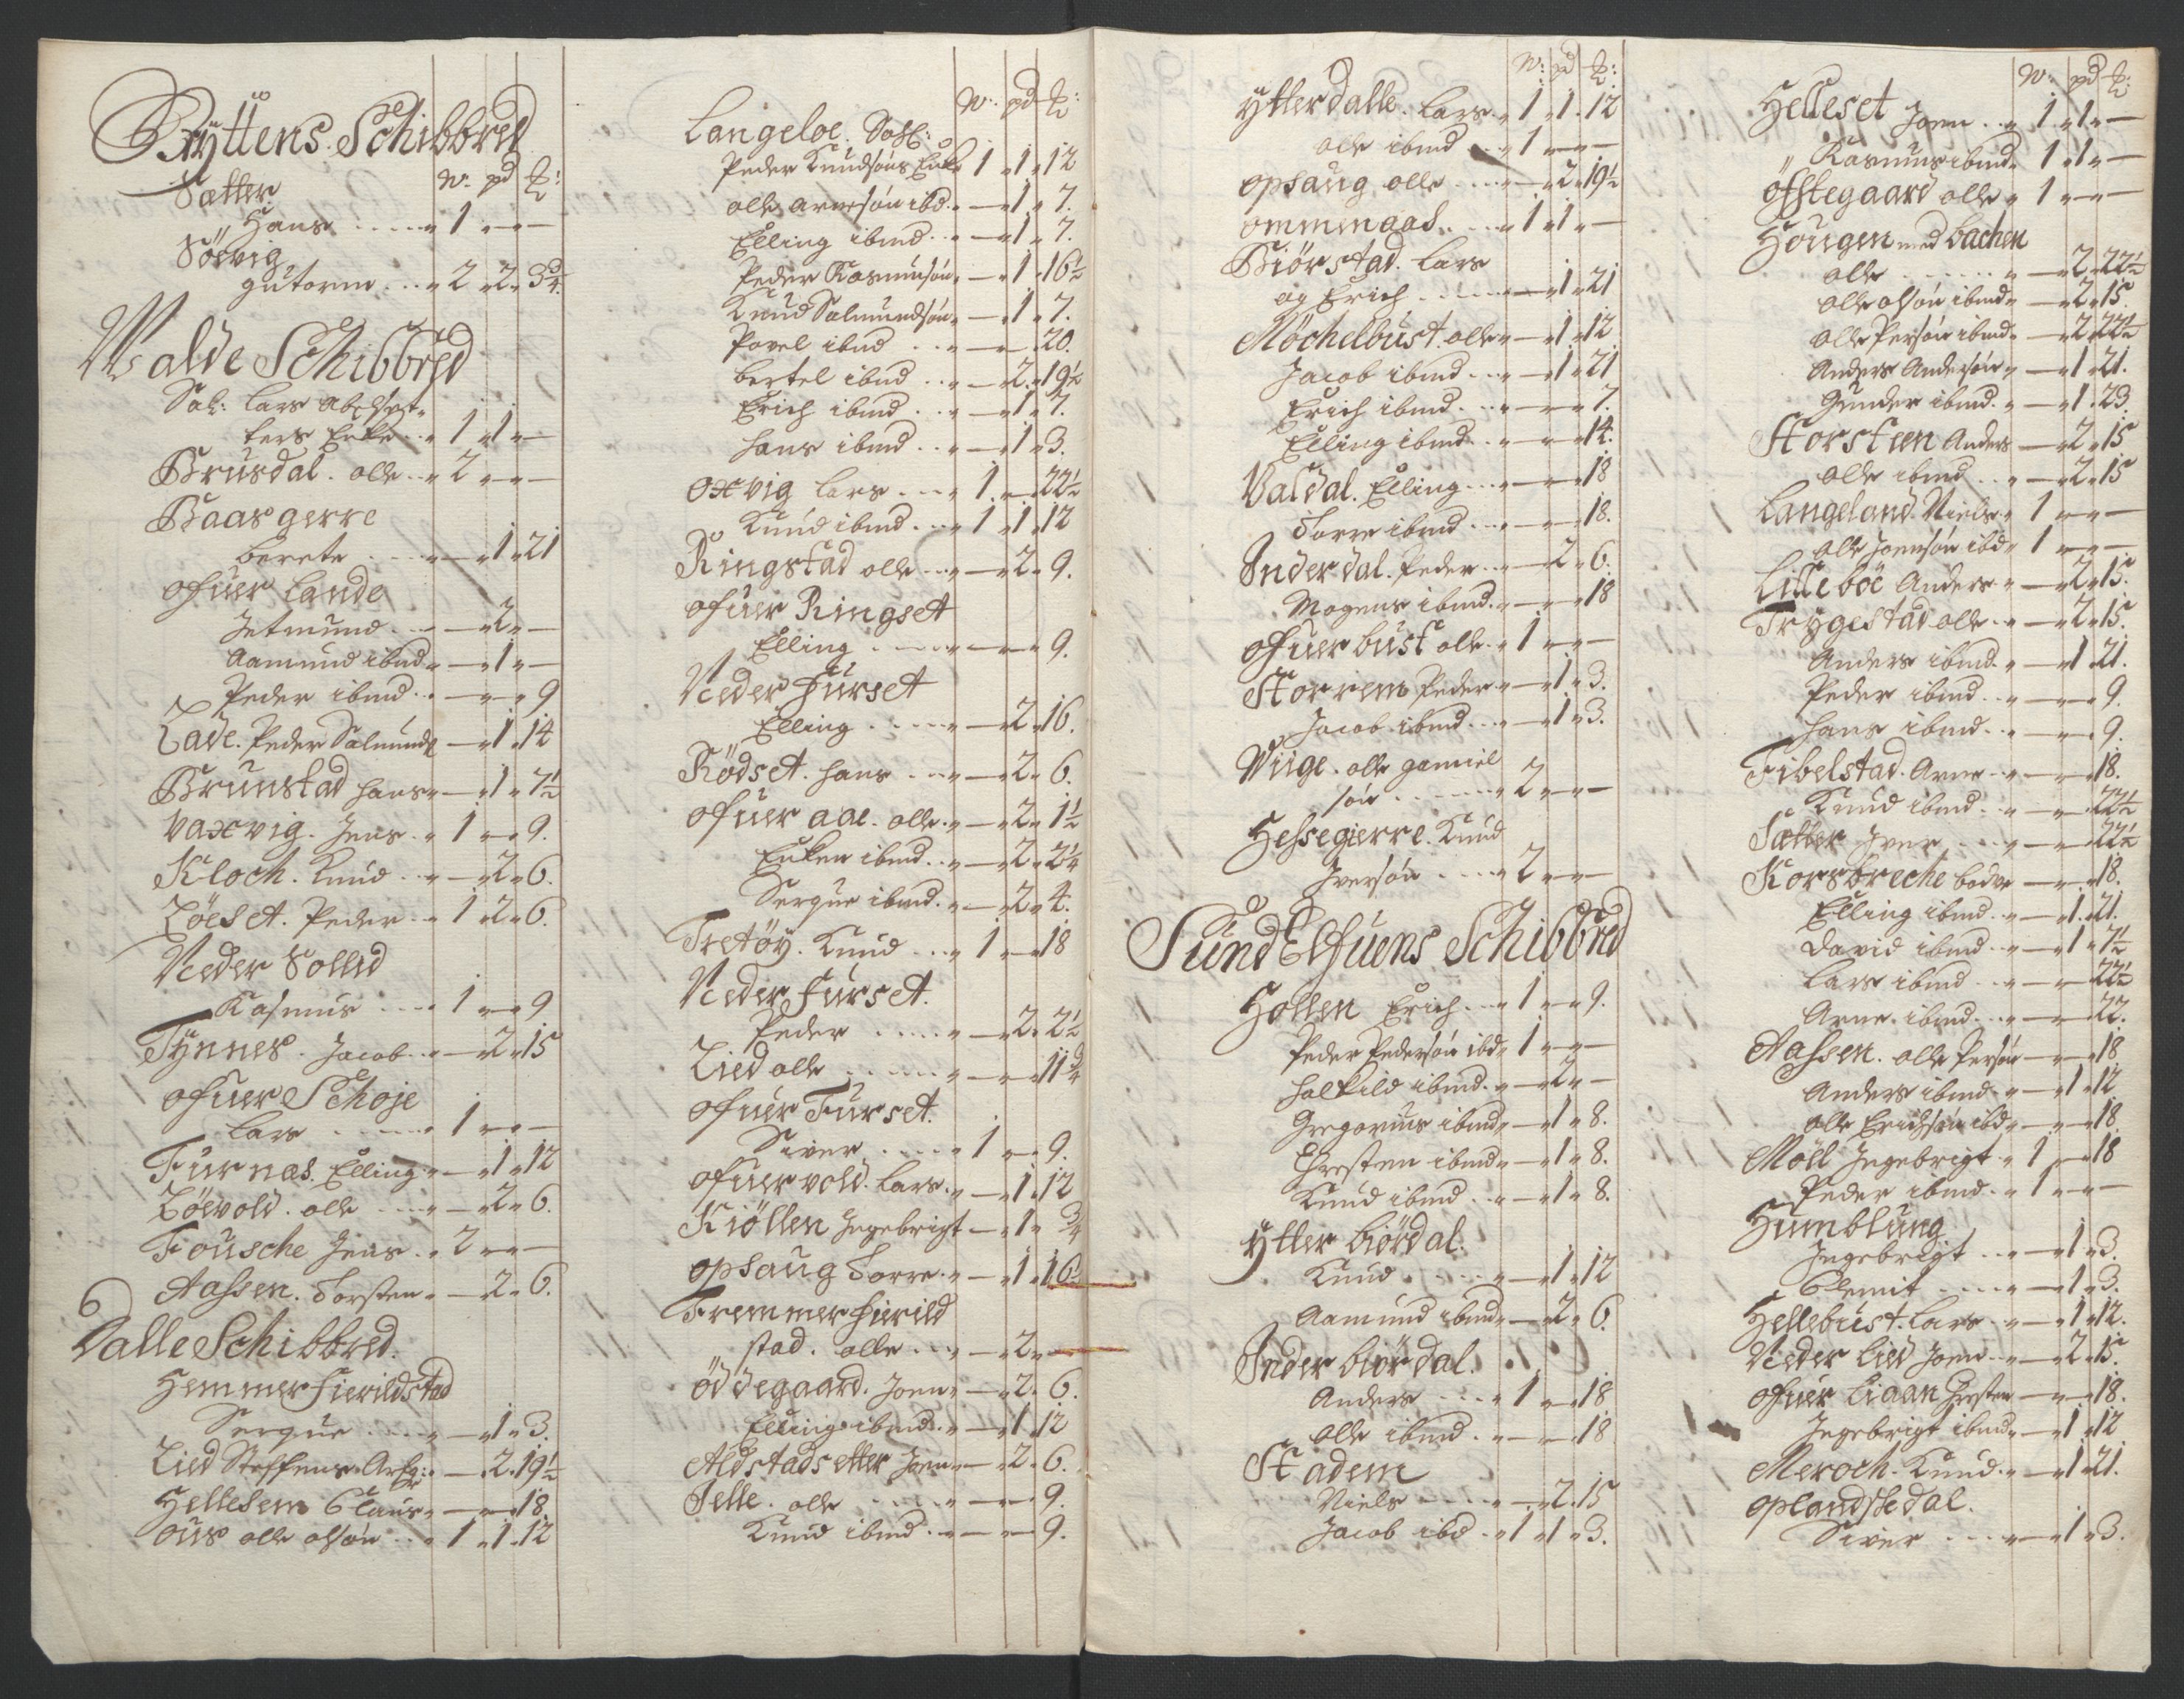 Ryttens Schibbred
W: pd ℔:
Sætter
" Hans ..... " 1 " — " —
Söevig
gutorm ... " 2 " 2 " 3 3/4
Walde Schibbred
Sal: Lars
ters Enke .. " 1 " 1 " —
Brusdal. olle .. " 2 " — " —
Baasgerre
berete .... " — " 1 " 21
ofuer Lande
Jetmund .. — " 2 " —
Aamund ibmd " — " 1 " —
Peder ibmd .. " — " — " 9
Lade. Peder Salmunds — " 1 " 14
Brunstad Hans " — " 1 " 7 1/2
Vaxvig. Jens .. " 1 " — " 9.
Kloch. Knud .. " — " 2 " 6.
Löeset. Peder .. " 1 " 2 " 6.
Neder Sollid
Rasmus .... " 1 " — " 9
Tynnes. Jacob .. " — " 2 " 15
ofuer Schoje
Lars ..... " 1 " — " —
Furnæs. Elling " — " 1 " 12
Löevold. olle .... " — " 2 " 6.
Fousche Jens .. " 2 " — " —
Aassen. Torsten " — " 2 " 6.
Dalle Schibbred.
Hemmer Fierildstad
Serque .... " — " 1 " 3.
Lied Steffens Arfg: " — " 2 " 19 1/2
Hellesem Claus " — " — " 18.
ous olle olsøn .. " 1 " 1 " 12
W: pd ℔:
Langeloe. Sahl:
Peder Knudsøns Enke 1 " 1 " 12
olle Arnesøn ibd. " — " 1 " 7.
Elling ibmd .. " — " 1 " 7.
Peder Rasmusøn " — " 1 " 16 1/2
Knud Salmundsøn " — " 1 " 7.
Povel ibmd .. " — " — 20.
bertel ibmd .. " — " 2 " 19 1/2
Erich ibmd .. " — " 1 " 7.
Hans ibmd .. " — " 1 " 3.
oxvig Lars ... " 1 " — " 22 1/2
Knud ibmd ... " 1 " 1 " 12
Ringstad olle ... " — " 2 " 9.
ofuer Ringset
Elling ..... " — " — " 9.
Neder Furset
Elling ..... " — " 2 " 16.
Rödset. Hans .... " — " 2 " 6.
ofuer aae. olle .. " — " 2 " 1 1/2
Enken ibmd .. " — " 2 " 2 1/4
Serque ibmd. " — " 2 " 4.
Fretöy. Knud ... " 1 " — " 18
Neder Furset.
Peder ..... " — " 2 " 2 1/2
Lied olle ...... " — " — " 11 3/4
ofuer Furset.
Siver ..... " 1 " — " 9.
ofuer vold. Lars .. " — " 1 " 12
Kiöllen Ingebrigt — " 1 " 3/4
opsaug Torre .. " — " 1 " 16 1/2
Fremmer Fierild
stad. olle ... " — " 2 " —
öddegaard. Joen " — " 2 " 6.
Elling ibmd. " — " 1 " 12
Aldstadsetter Joen " — " 2 " 6.
Jelle. olle ...... " — " — " 9.
Knud ibmd .. " — " — " 9.
W: pd ℔:
ytterdalle. Lars " 1 " 1 " 12
olle ibmd .. " 1 " — " —
opsaug olle ..... " — " 2 " 19 1/2
ommenaas .. .... " 1 " 1 " —
Biörstad. Lars
og Erich ...... " — " 1 " 21
Möchelbust. olle " — " 1 " 12
Jacob ibmd ... " — " 1 " 21
Erich ibmd ... " — " — " 7.
Elling ibmd .. " — " — " 14.
Valdal. Elling ... " — " — " 18
Torre ibmd ... " — " — " 18.
Inderdal. Peder .. " — " 2 " 6.
Mogens ibmd. " — " — " 18
ofuerbust olle .. " 1 " — " —
Storrem Peder " — " 1 " 3.
Jacob ibmd ... " — " 1 " 3.
Wiige. olle gamiel
søn ...... " 2 " — " —
Hessegierre. Knud
Iversøn .... " 2 " — " —
Sund Elfuens Schibbred
Hollen Erich ... " 1 " — " 9.
Peder Pedersøn ibd " 1 " — " —
Halkild ibmd. " — " 2 " —
Gregorius ibmd " — " 1 " 8.
Chresten ibmd " — " 1 " 8.
Knud ibmd .. " — " 1 " 8.
ytter biördal.
Knud ..... " — " 1 " 12
Aamund ibmd " — " 2 " 6.
Inder biördal.
Anders .... " 1 " — " 18
olle ibmd .. " — " — " 18
Stadem
Niels ..... " — " 2 " 15
Jacob ibd .. " 1 " 1 " 3.
W: pd ℔:
Helleset Joen .. " 1 " 1 " —
" Rasmus ibmd " 1 " 1 " —
öfstegaard olle " 1 " — " —
Hougen med bachen
olle ...... " — " 2 " 22 1/2
olle olsøn ibmd " — " 2 " 15.
olle Persøn ibmd " — " 2 " 22 1/2
Anders Andersøn " — " 1 " 21.
Gunder ibmd. " — " 1 " 23.
Storsteen Anders — " 2 " 15
olle ibmd .. " — " 2 " 15
Langeland Niels " 1 " — " —
olle Joensøn ibd " 1 " — " —
Lilleböe Anders " — " 2 " 15.
Trygestad olle .. " — " 2 " 15.
Anders ibmd. " — " 1 " 21.
Peder ibmd .. " — " — " 9.
Hans ibmd .. " — " — " 9.
Fibelstad. Arne .. " — " — " 18.
Knud ibmd .. " — " — " 22 1/2
Sætter Iver ... " — " — " 22 1/2
Korsbreche — " — " 18.
Elling ibmd .. " — " 1 " 21.
David ibmd .. " — " 1 " 7 1/2
Lars ibmd ... " — " — " 22 1/2
Arne ibmd ... " — " — " 22.
Aassen. olle Persøn — " — " 18
Anders ibmd. " — " 1 " 12
olle Erichsøn ibd " — " — " 18.
Möll Ingebrigt " 1 " — " 18
Peder ibmd .. " 1 " — " —
Humblung
Ingebrigt .. " — " 1 " 3.
Clemit .... " — " 1 " 3.
Hellebust. Lars .. " — " 1 " 12.
Neder Lied Joen .. " — " 2 " 15.
ofuer Liaan — " — " 18.
Ingebrigt ibmd " — " 1 " 12
Meroch. Knud .. " — " 1 " 21.
oplandskedal.
Siver ..... " — " 1 " 3.